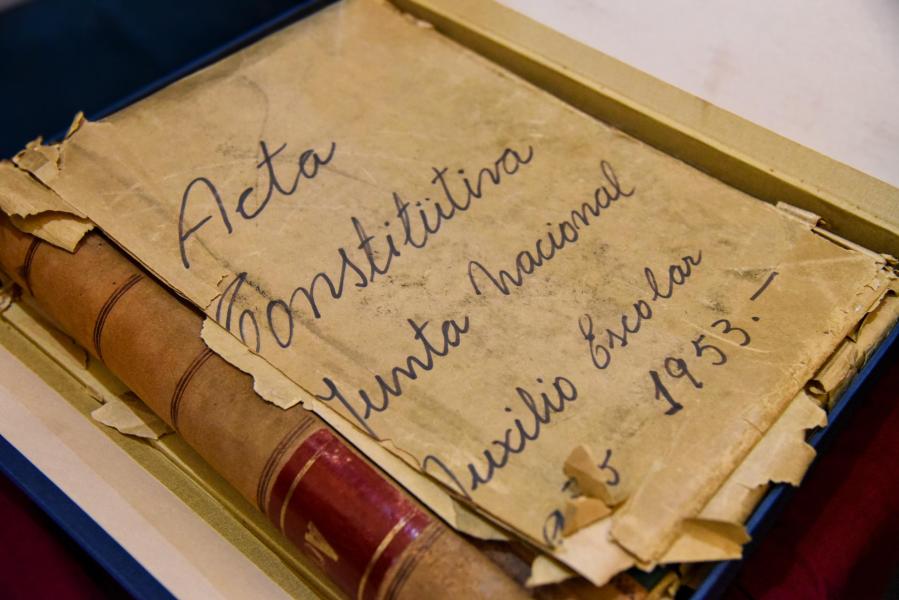 Acta
Constitutiva
Junta Nacional
Auxilio Escolar
1953.-